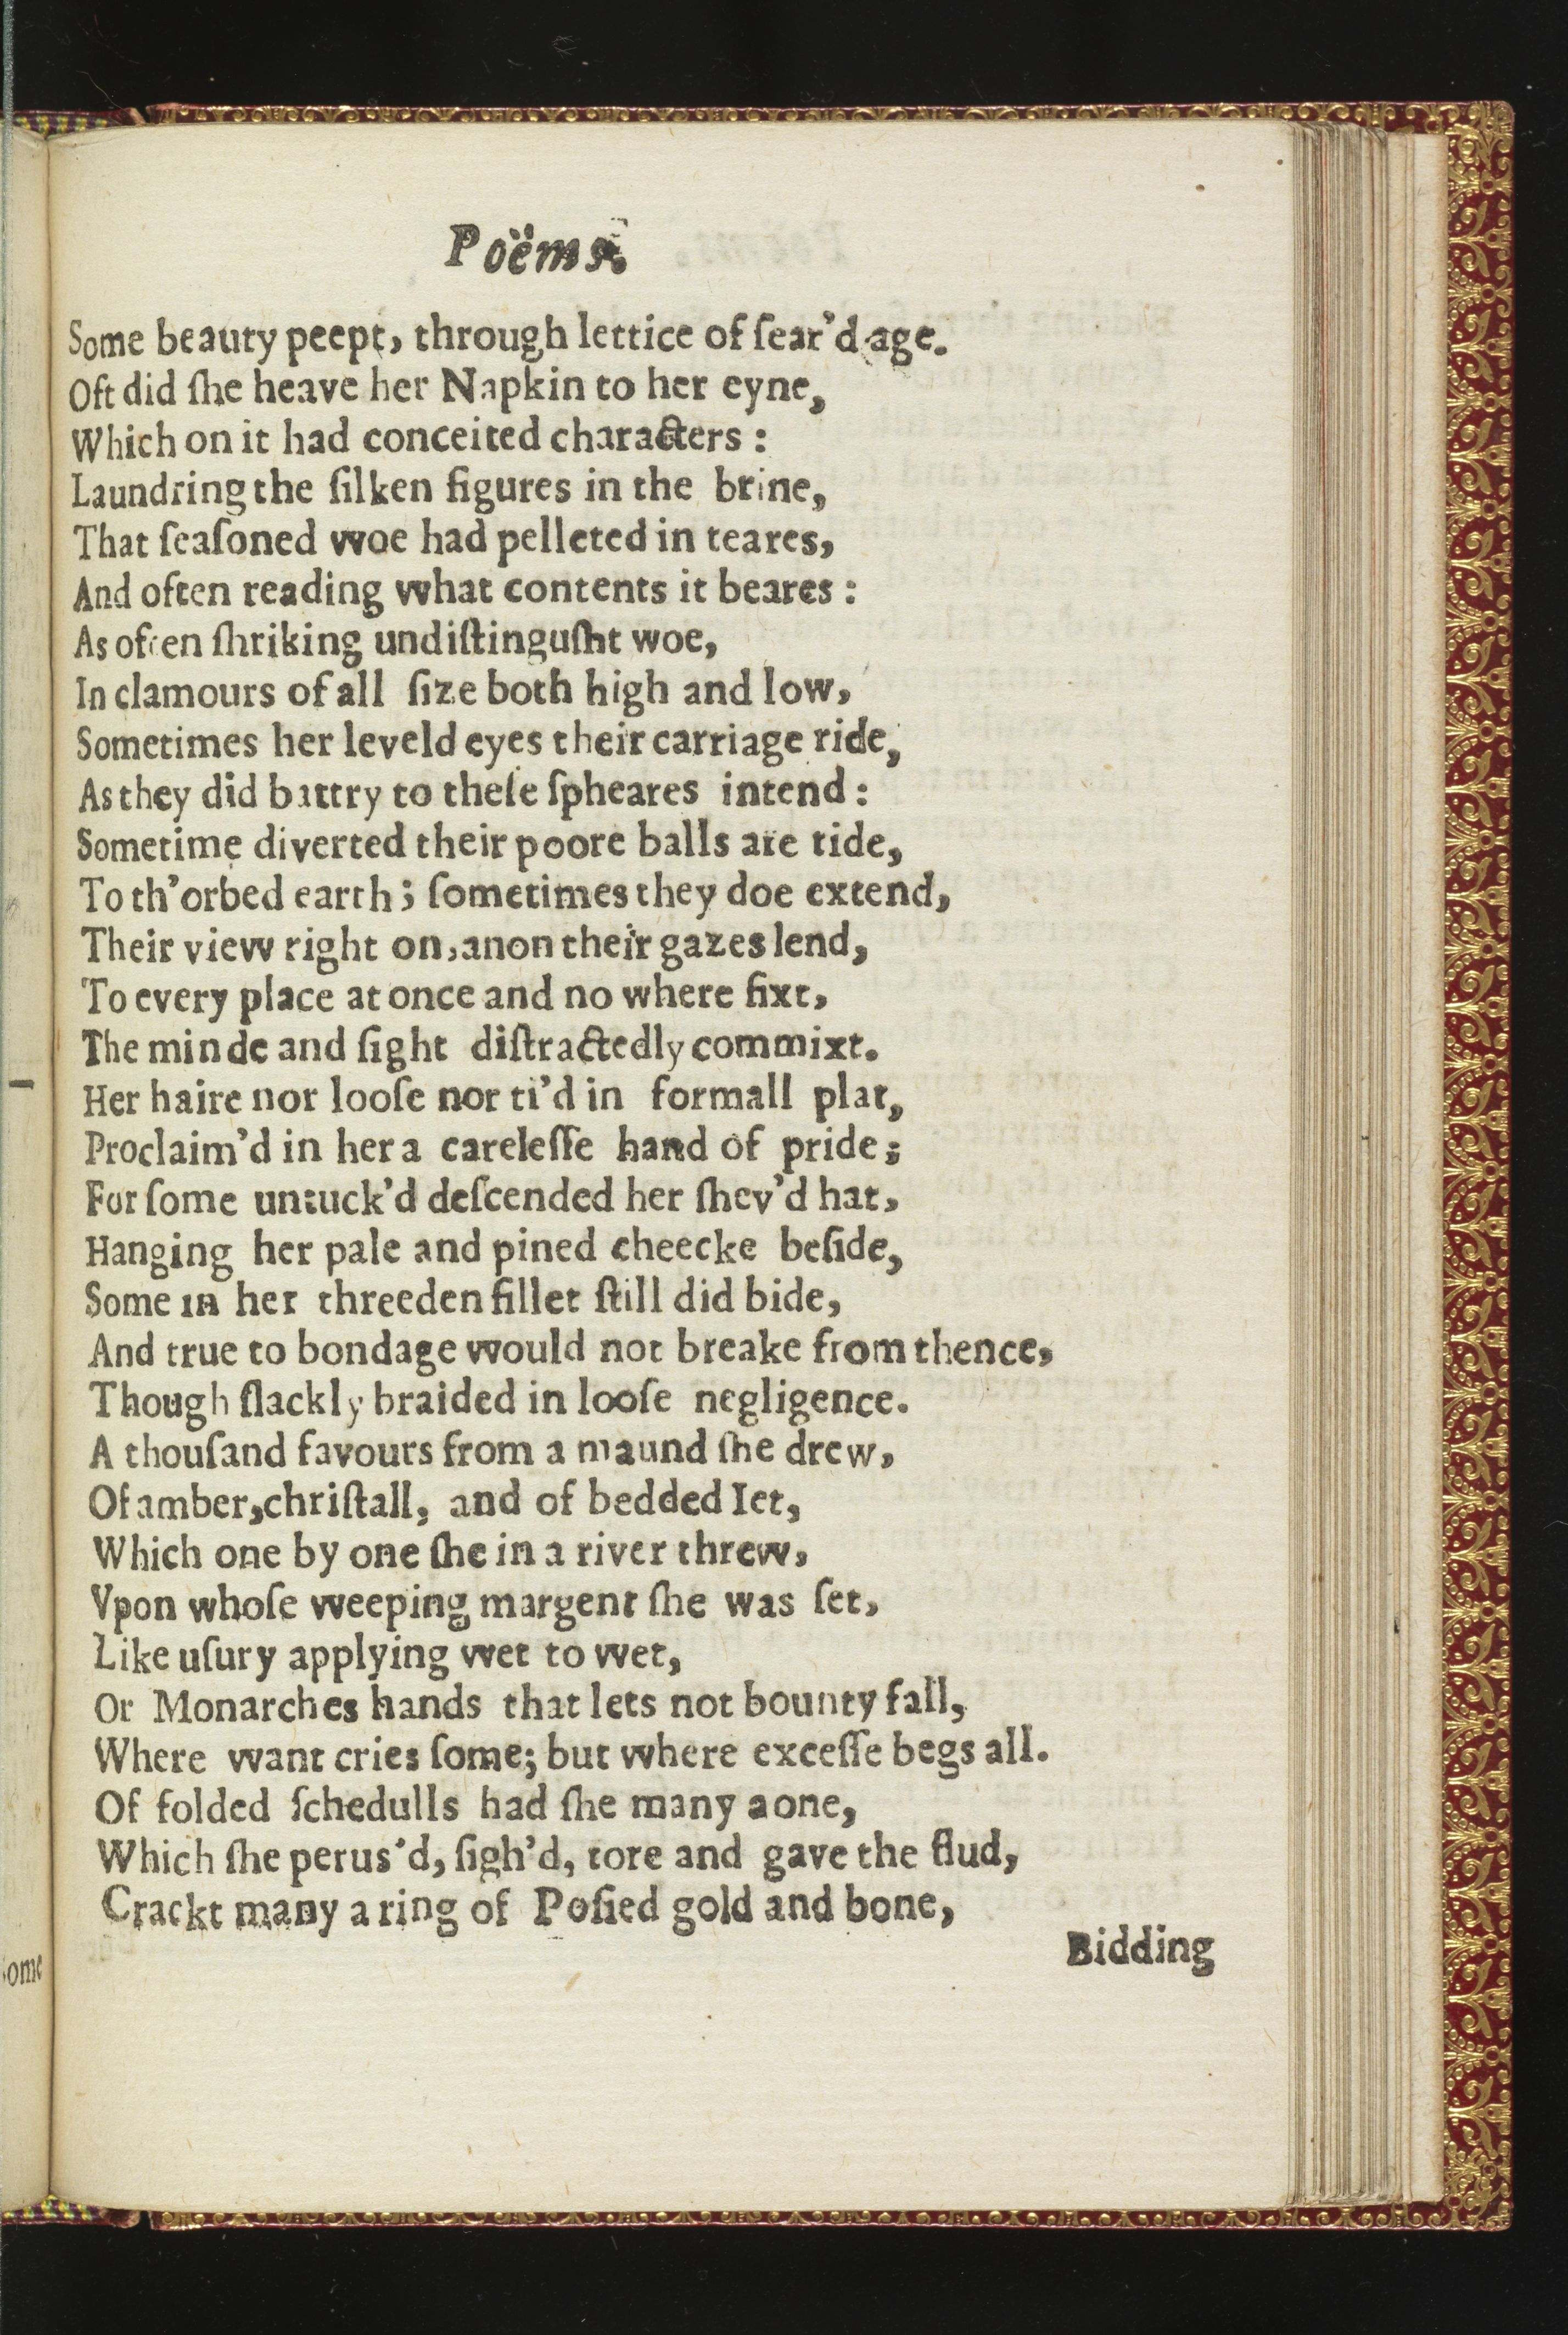 Poëms.
Some beauty peept, through lettice of ſear'd age.
Oft did ſhe heave her Napkin to her eyne,
Which on it had conceited characters :
Laundring the ſilken figures in the brine,
That ſeaſoned woe had pelleted in teares,
And often reading what contents it beares :
As often ſhriking undiſtinguſht woe,
In clamours of all ſize both high and low,
Sometimes her leveld eyes their carriage ride,
As they did battry to theſe ſpheares intend :
Sometime diverted their poore balls are tide,
To th'orbed earth ; ſometimes they doe extend,
Their view right on, anon their gazes lend,
To every place at once and no where fixt,
The minde and ſight diſtractedly commixt.
Her haire nor looſe nor ti'd in formall plat,
Proclaim'd in her a careleſſe hand of pride ;
For ſome untuck'd deſcended her ſhev'd hat,
Hanging her pale and pined cheecke beſide,
Some in her threeden fillet ſtill did bide,
And true to bondage would not breake from thence,
Though ſlackly braided in looſe negligence.
A thouſand favours from a maund ſhe drew,
Of amber, chriſtall, and of bedded Iet,
Which one by one ſhe in a river threw,
Vpon whoſe weeping margent ſhe was ſet,
Like uſury applying wet to wet,
Or Monarches hands that lets not bounty fall,
Where want cries ſome; but where exceſſe begs all.
Of folded ſchedulls had ſhe many a one,
Which ſhe perus'd, ſigh'd, tore and gave the flud,
Crackt many a ring of Poſied gold and bone,
Bidding
ome